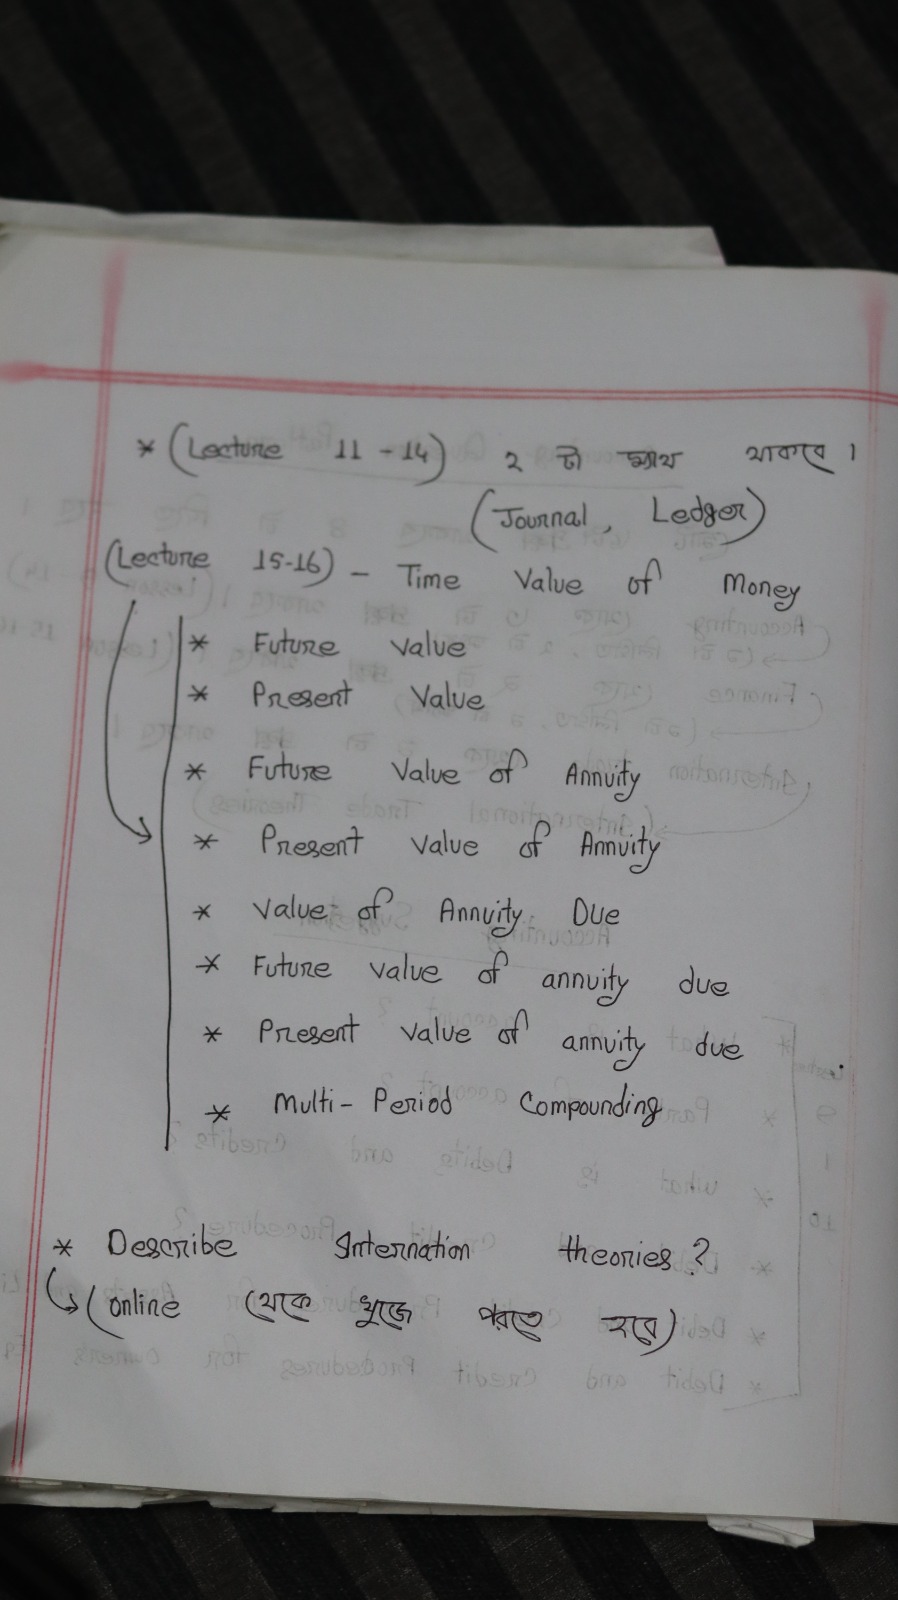 * (Lecture 11 - 14) ২ টা ম্যাথ থাকবে।
(Journal, Ledger)
(Lecture 15-16) - Time Value of Money
* Future value
* Present Value
* Future Value of Annuity
* Present value of Annuity
* value of Annuity Due
* Future value of annuity due
* Present value of annuity due
* Multi-Period Compounding
* Describe Internation theories?
(online থেকে খুজে পরতে হবে)